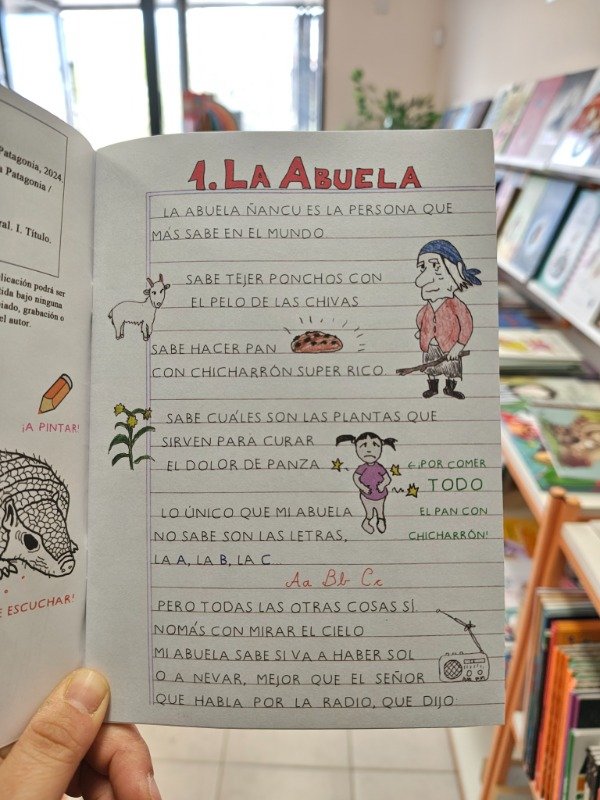 Patagonia, 2024.
a Patagonia /
ral. I. Título.
licación podrá ser
tida bajo ninguna
piado, grabación o
el autor.
¡A PINTAR!
E ESCUCHAR!
1. LA ABUELA
LA ABUELA ÑANCU ES LA PERSONA QUE
MÁS SABE EN EL MUNDO
SABE TEJER PONCHOS CON
EL PELO DE LAS CHIVAS
SABE HACER PAN
CON CHICHARRÓN SUPER RICO.
SABE CUÁLES SON LAS PLANTAS QUE
SIRVEN PARA CURAR
EL DOLOR DE PANZA
←¡POR COMER
TODO
EL PAN CON
CHICHARRÓN!
LO ÚNICO QUE MI ABUELA
NO SABE SON LAS LETRAS,
LA A, LA B, LA C...
Aa Bb Cc
PERO TODAS LAS OTRAS COSAS SÍ.
NOMÁS CON MIRAR EL CIELO
MI ABUELA SABE SI VA A HABER SOL
O A NEVAR, MEJOR QUE EL SEÑOR
QUE HABLA POR LA RADIO, QUE DIJO